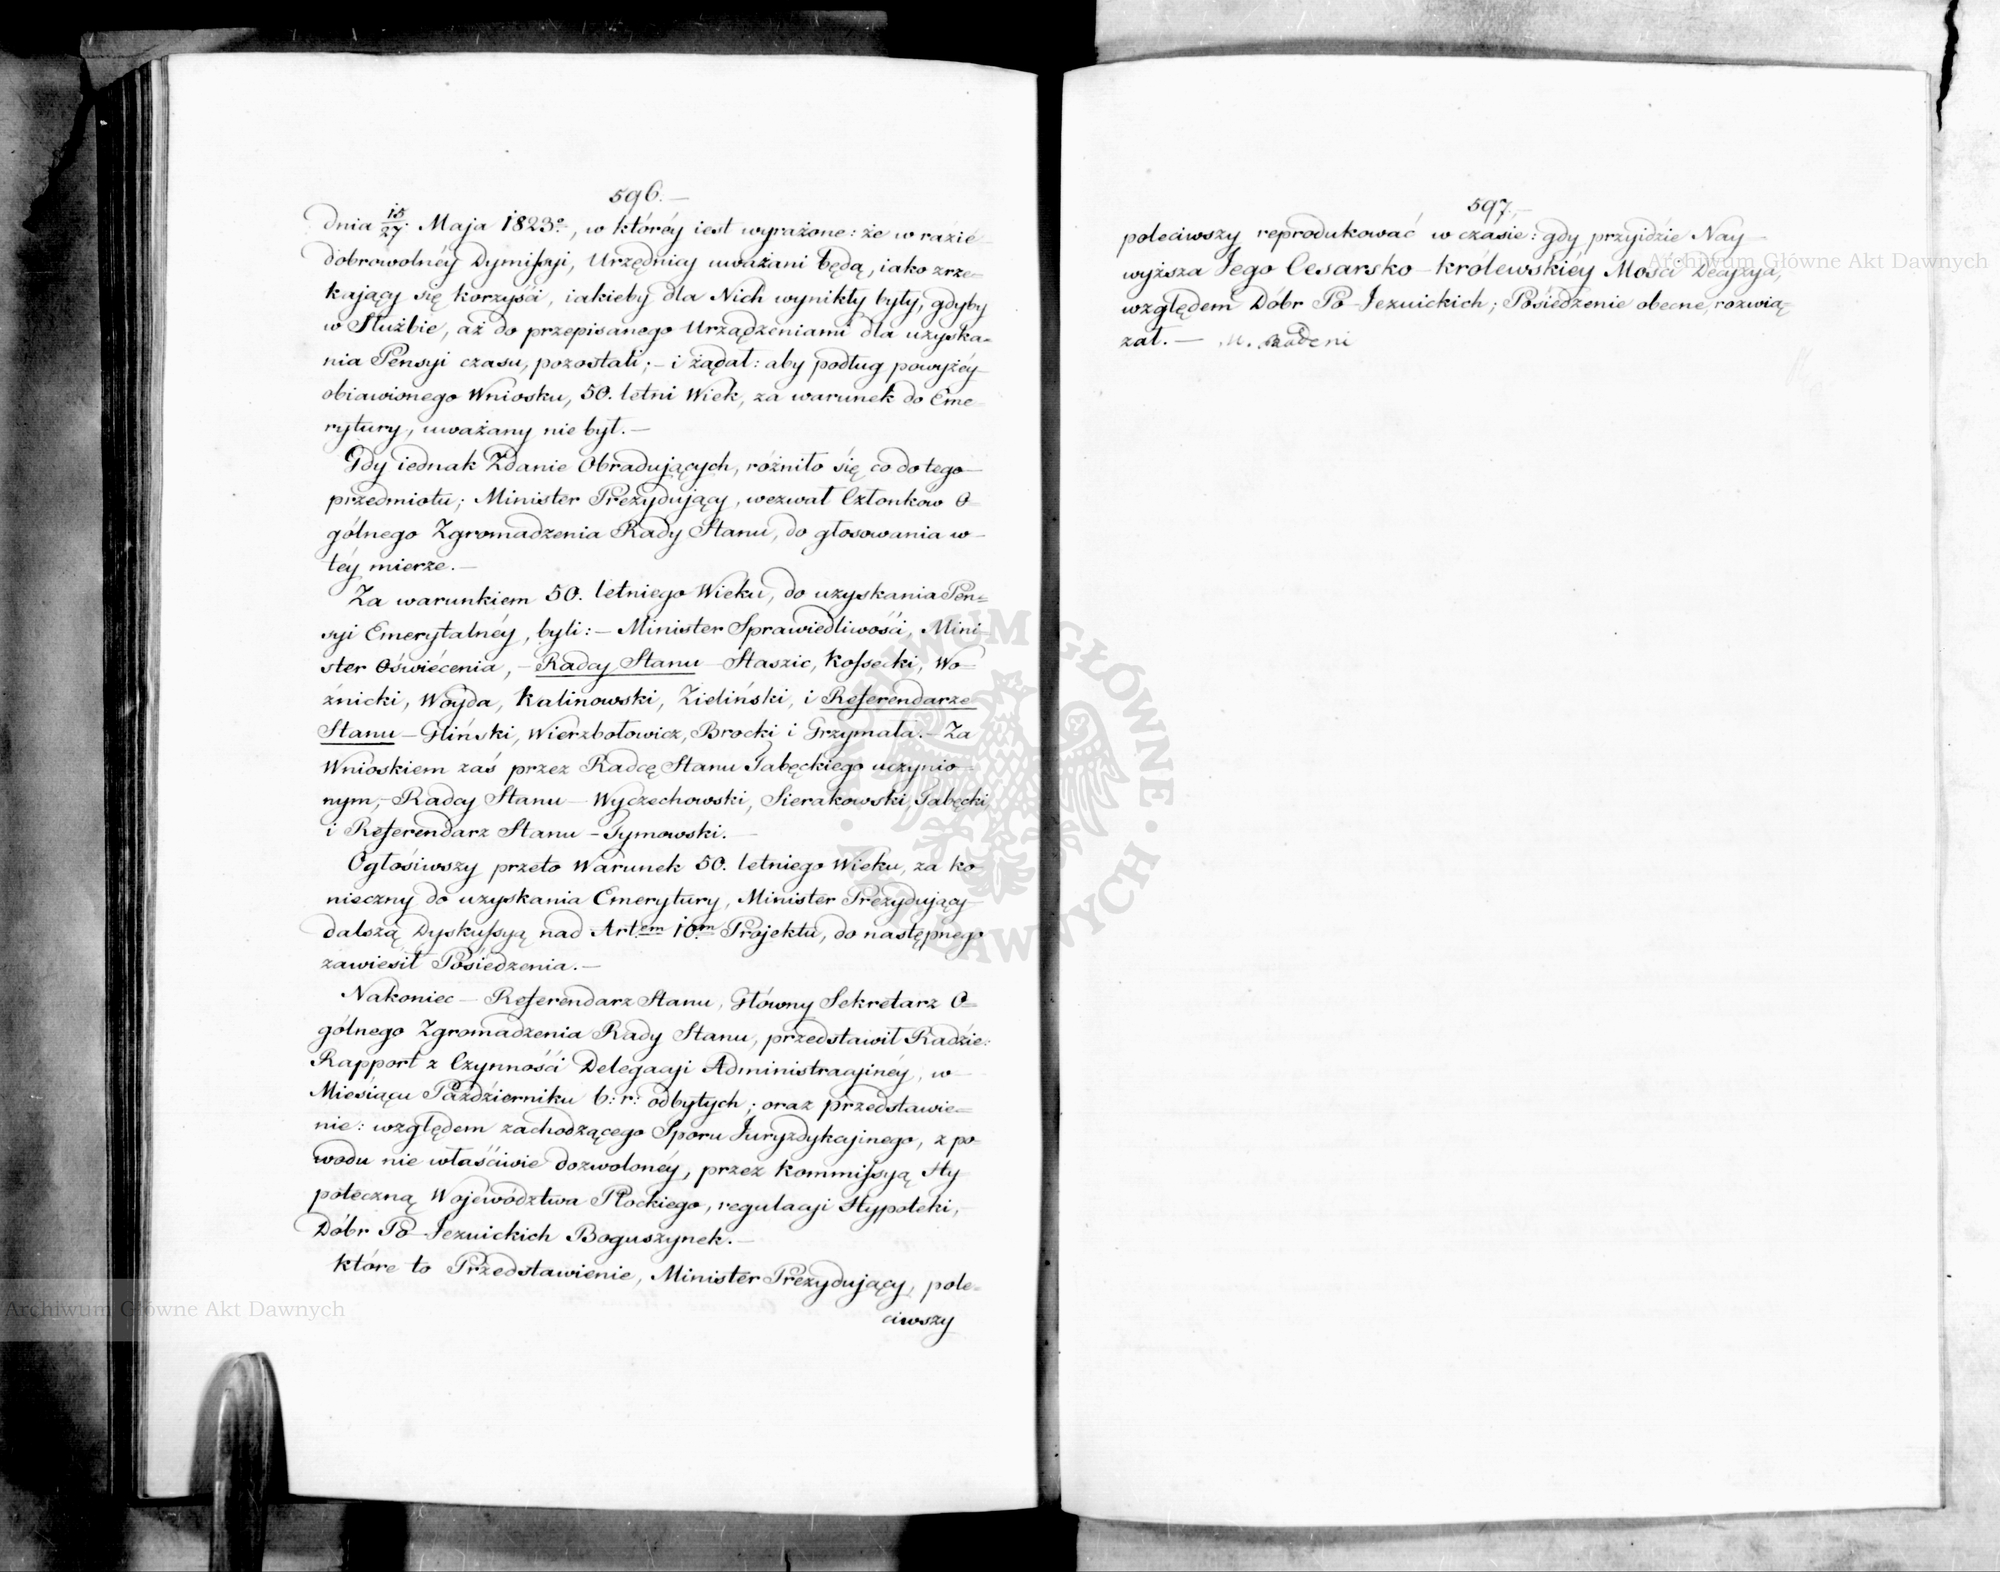 596.—
dnia 15/27 Maja 1823º, w któréy iest wyrażone: że w razie
dobrowolnéy Dymissyi, Urzędnicy uważani będą, iako zrze=
kaiący się korzyści, iakieby dla Nich wynikły były, gdyby
w Służbie, aż do przepisanego Urządzeniami dla uzyska=
nia Pensyi czasu, pozostali; – i żądał: aby podług powyżéy
obiawionego Wniosku, 50. letni Wiek, za warunek do Eme=
rytury, uważany nie był.—
Gdy iednak Zdanie Obraduiących, różniło się co do tego
przedmiotu; Minister Prezyduiący, wezwał Członków O=
gólnego Zgromadzenia Rady Stanu, do głosowania w
téy mierze.—
Za warunkiem 50. letniego Wieku, do uzyskania Pen=
syi Emerytalnéy, byli: – Minister Sprawiedliwości, Mini=
ster Oświécenia, – Radcy Stanu – Staszic, Kossecki, Wo=
źnicki, Woyda, Kalinowski, Zieliński, i Referendarze
Stanu – Gliński, Wierzbołowicz, Brocki i Grzymała. – Za
Wnioskiem zaś przez Radcę Stanu Łabęckiego uczynio=
nym, – Radcy Stanu – Wyczechowski, Sierakowski, Łabęcki,
i Referendarz Stanu – Tymowski.—
Ogłosiwszy przeto Warunek 50. letniego Wieku, za ko=
nieczny do uzyskania Emerytury, Minister Prezyduiący
dalszą Dyskussyą nad Art.em 10.m Projektu, do następnego
zawiesił Posiedzenia.—
Nakoniec – Referendarz Stanu, Główny Sekretarz O=
gólnego Zgromadzenia Rady Stanu, przedstawił Radzie:
Rapport z Czynności Delegacyi Administracyinéy, w
Miesiącu Październiku b: r: odbytych; oraz przedstawie=
nie: względem zachodzącego Sporu Juryzdykcyinego, z po=
wodu nie właściwie dozwolonéy, przez Kommissyą Hy
poteczną Województwa Płockiego, regulacyi Hypoteki,
Dóbr Po-Jezuickich Boguszynek.—
Które to Przedstawienie, Minister Prezyduiący, pole=
ciwszy
597.
poleciwszy reprodukować w czasie: gdy przyidzie Nay
wyższa Jego Cesarsko-Królewskiéy Mości Decyzya,
względem Dóbr Po-Jezuickich; Posiedzenie obecne, rozwią=
zał.— M. Badeni
Archiwum Główne Akt Dawnych
Archiwum Główne Akt Dawnych
ARCHIWUM GŁÓWNE AKT DAWNYCH